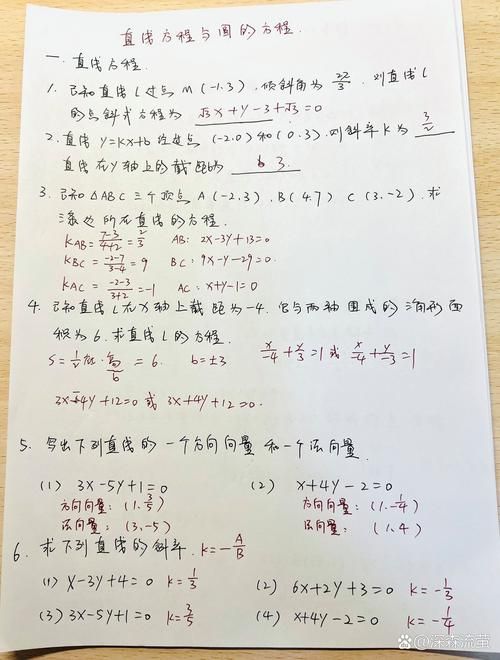 直线方程与圆的方程.
一. 直线方程.
1. 已知直线 l 过点 M (-1.3), 倾斜角为 2π/3. 则直线 l
的点斜式方程为 √3x+y-3+√3=0
2. 直线 y=kx+b 经过点 (-2.0) 和 (0.3). 则斜率 k 为 3/2
直线在 y 轴上的截距为 3.
3. 已知 △ABC 三个顶点 A (-2.3). B (4.7) C (3.-2). 求
三条边所在直线的方程.
K_AB = (7-3)/(4+2) = 2/3 AB: 2x-3y+13=0
K_BC = (-2-7)/(3-4) = 9 BC: 9x-y-29=0.
K_AC = (-2-3)/(3+2) = -1 AC: x+y-1=0
4. 已知直线 l 在 x 轴上截距为 -4. 它与两轴围成的三角形面
积为 6. 求直线 l 的方程.
S = 1/2 底·高/b = 6. b=±3 x/-4 + y/3 = 1 或 x/-4 + y/-3 = 1
3x-4y+12=0 或 3x+4y+12=0.
5. 写出下列直线的一个方向向量和一个法向量.
(1) 3x-5y+1=0 (2) x+4y-2=0
方向向量: (1.3/5) 方向向量: (1.-1/4)
法向量: (3,-5) 法向量: (1,4)
6. 求下列直线的斜率. k=-A/B
(1) x-3y+4=0 k=1/3 (2) 6x+2y+3=0 k=-1/3
(3) 3x-5y+1=0 k=3/5 (4) x+4y-2=0 k=-1/4
@深森流萤